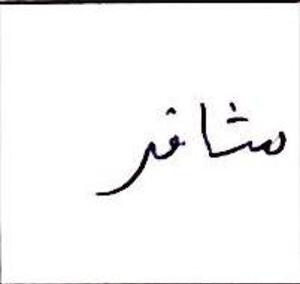 مشافر